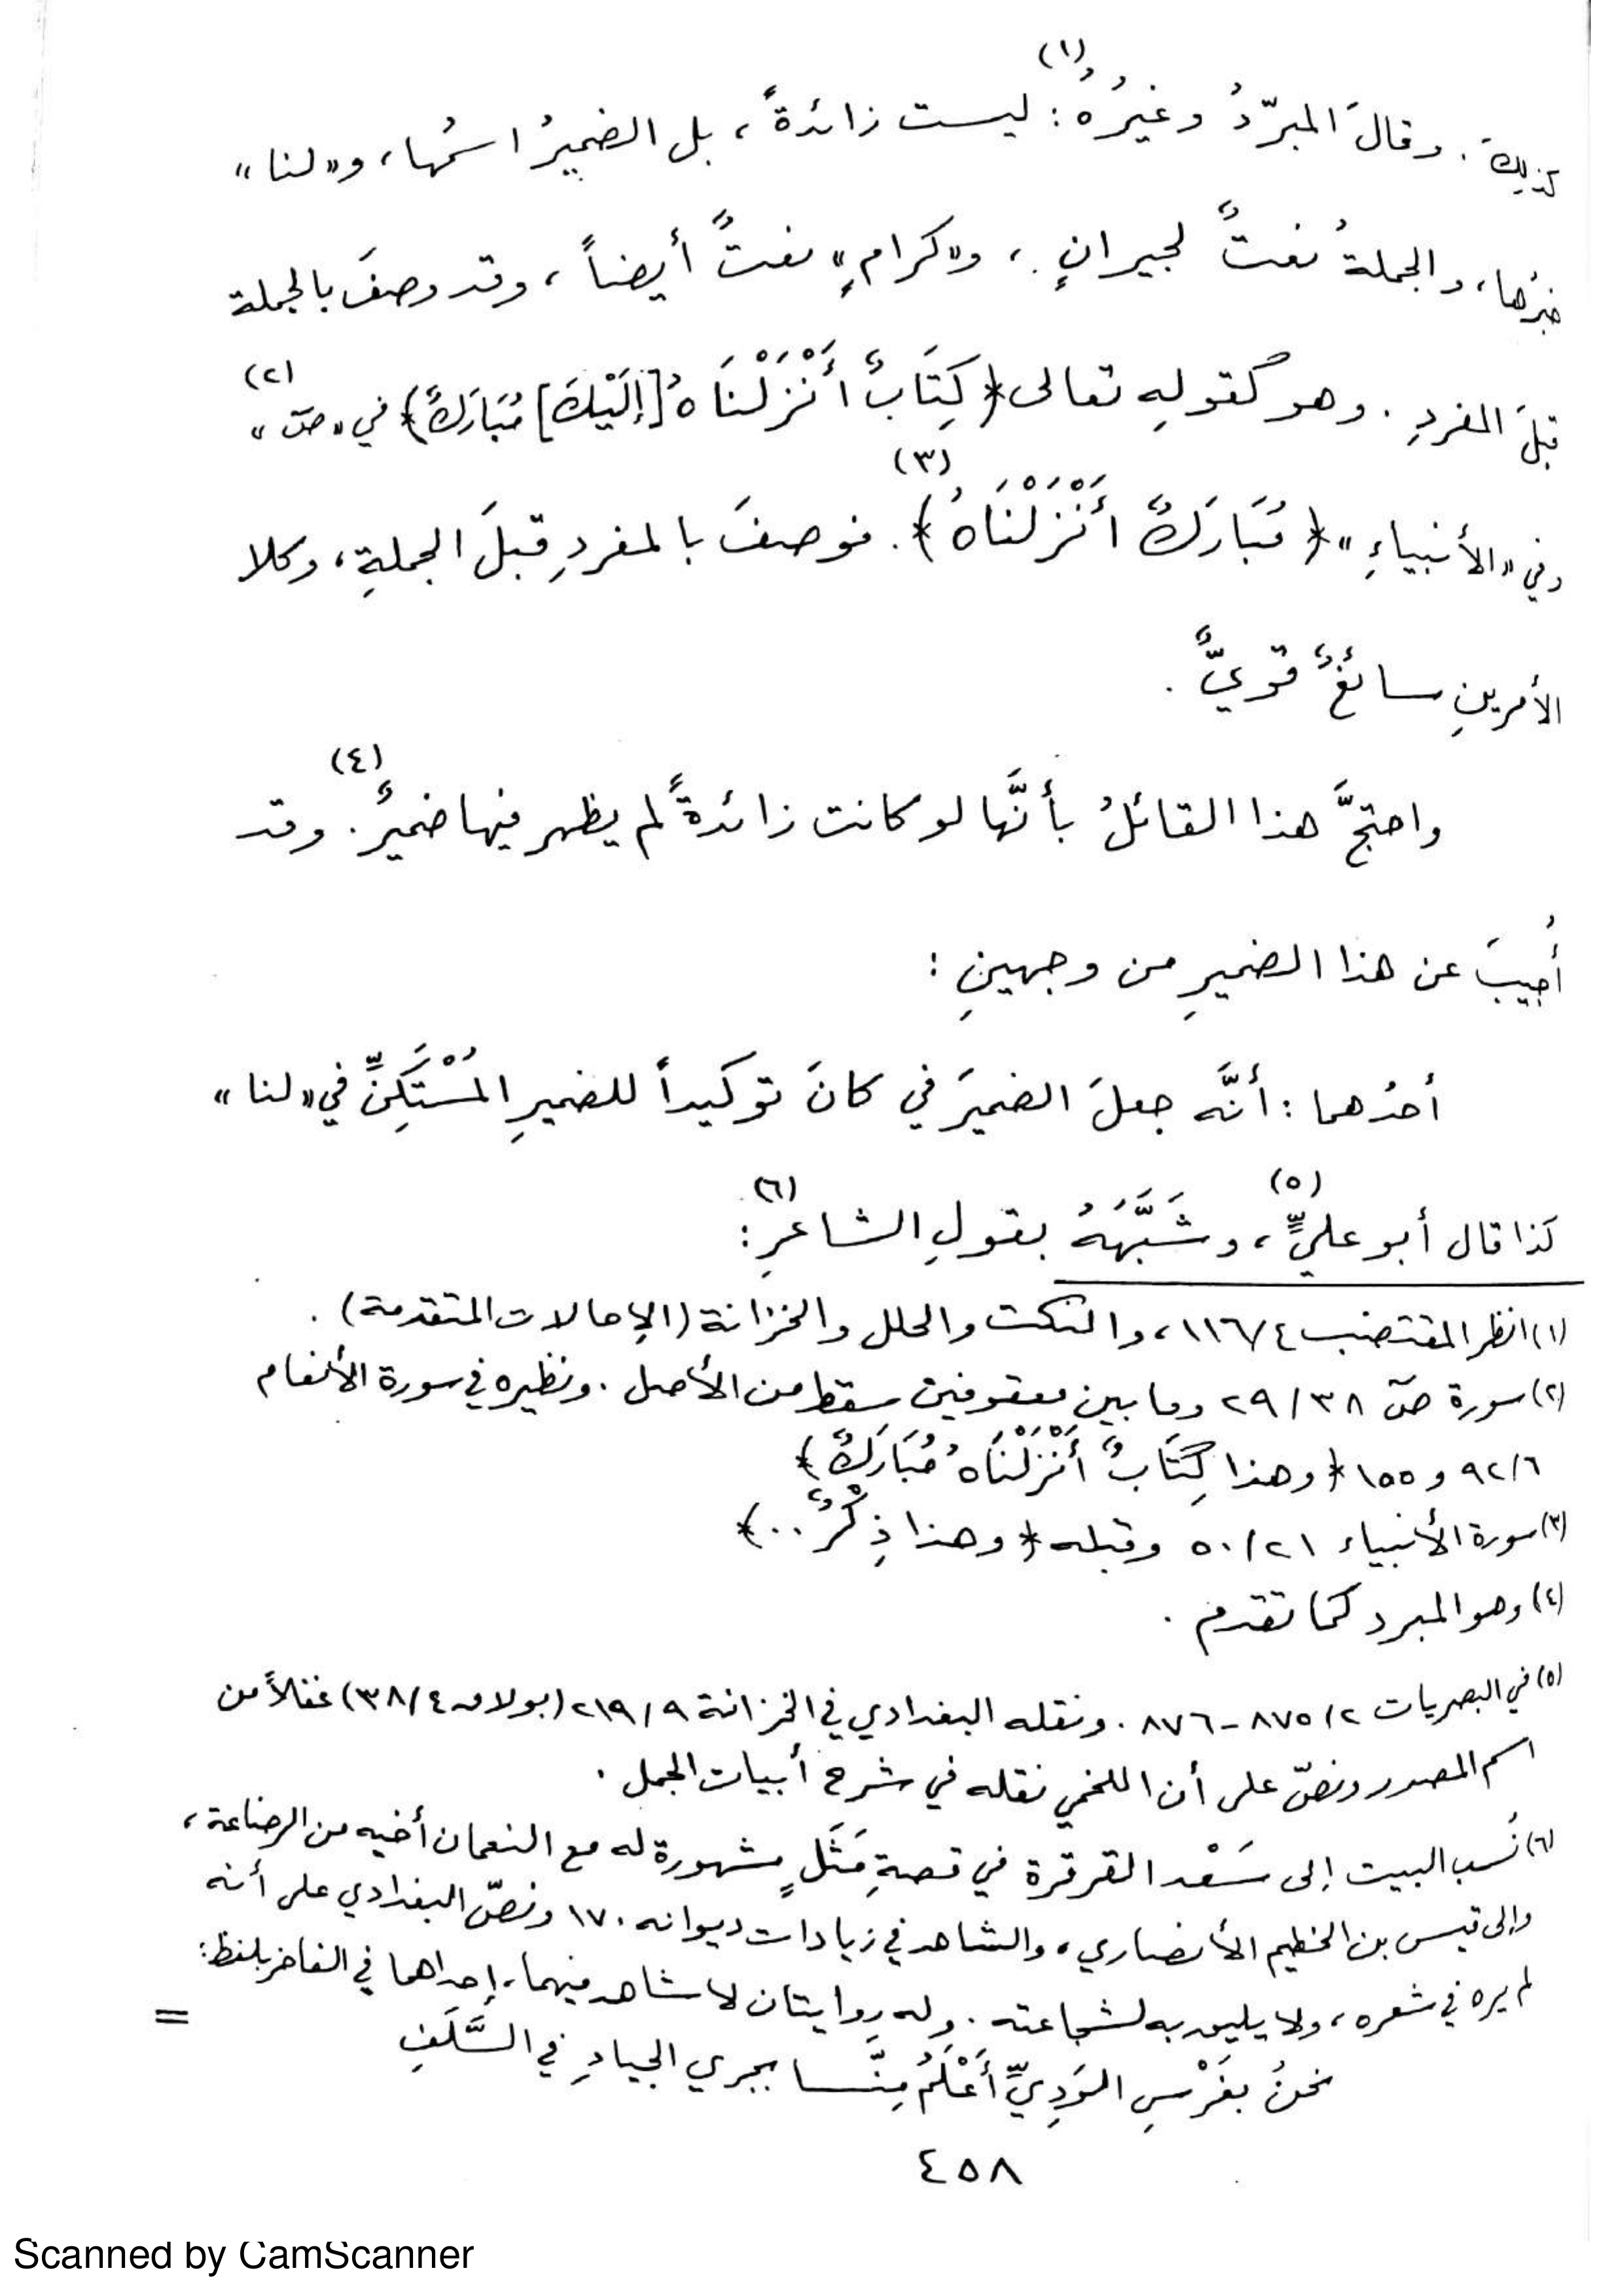 كذلكَ. وقالَ المبرّدُ وغيرُهُ(١): ليست زائدةً، بل الضميرُ اسمُها، و«لنا»
خبرُها، والجملةُ نعتٌ لجيرانٍ، و«كرامٍ» نعتٌ أيضاً، وقد وصفَ بالجملة
قبلَ المفردِ. وهو كقولهِ تعالى ﴿كِتَابٌ أَنْزَلْنَاهُ [إِلَيْكَ] مُبَارَكٌ﴾ في «صۤ»(٢)
وفي «الأنبياءِ» ﴿مُبَارَكٌ أَنْزَلْنَاهُ﴾(٣). فوصفَ بالمفردِ قبلَ الجملةِ، وكلا
الأمرينِ سائغٌ قويٌّ.
واحتجَّ هذا القائلُ بأنَّها لو كانت زائدةً لم يظهر فيها ضميرٌ(٤). وقد
أُجيبَ عن هذا الضميرِ من وجهينِ:
أحدُهما: أنَّه جعلَ الضميرَ في كانَ توكيداً للضميرِ المُسْتَكِنِّ في «لنا»
كذا قال أبو عليٍّ(٥)، وشَبَّهَهُ بقولِ الشاعرِ(٦):
(١) انظر المقتضب ١١٦/٤، والنكت والحلل والخزانة (الإحالات المتقدمة).
(٢) سورة صۤ ٢٩/٣٨ وما بين معقوفين سقط من الأصل. ونظيره في سورة الأنعام
٩٢/٦ و ١٥٥ ﴿وهذا كِتَابٌ أَنْزَلْنَاهُ مُبَارَكٌ﴾
(٣) سورة الأنبياء ٥٠/٢١ وقبله ﴿وهذا ذِكْرٌ..﴾
(٤) وهو المبرد كما تقدم.
(٥) في البصريات ٨٧٥/٢-٨٧٦. ونقله البغدادي في الخزانة ٢١٩/٩ (بولاق ٣٨/٤) غفلاً من
اسم المصدر ونصّ على أن اللخمي نقله في شرح أبيات الجمل.
(٦) نُسب البيت إلى سَعْد القرقرة في قصةِ مَثَلٍ مشهورة له مع النعمان أخيه من الرضاعة،
وإلى قيس بن الخطيم الأنصاري، والشاهد في زيادات ديوانه ١٧٠ ونصّ البغدادي على أنه
لم يره في شعره، ولا يليق به لشجاعته. وله روايتان لا شاهد فيهما، إحداهما في الفاخر بلفظ:
نحنُ بغَرْسِ الوَدِيِّ أَعْلَمُ مِنّـــا بجري الجيادِ في السَّلَفِ
=
٤٥٨
Scanned by CamScanner